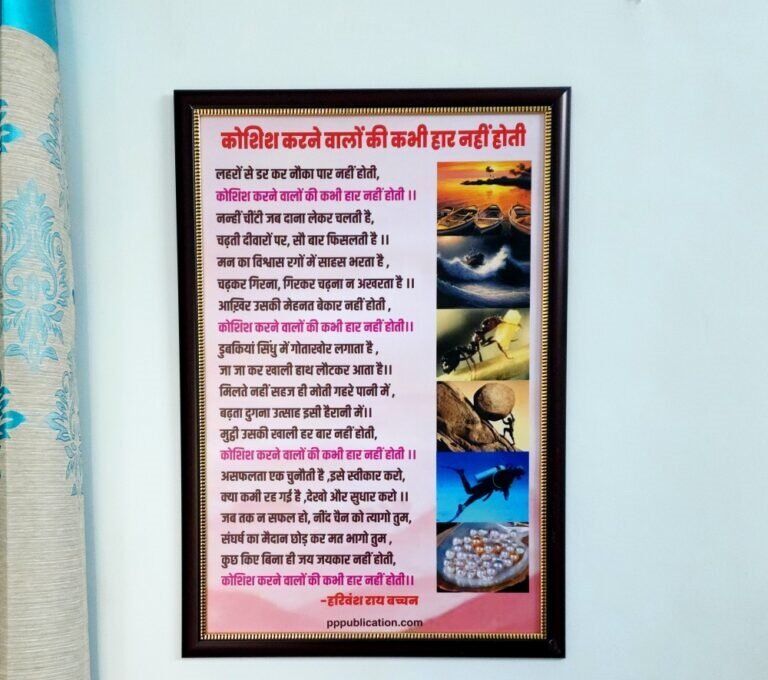 कोशिश करने वालों की कभी हार नहीं होती
लहरों से डर कर नौका पार नहीं होती,
कोशिश करने वालों की कभी हार नहीं होती ।।
नन्हीं चींटी जब दाना लेकर चलती है,
चढ़ती दीवारों पर, सौ बार फिसलती है ।।
मन का विश्वास रगों में साहस भरता है ,
चढ़कर गिरना, गिरकर चढ़ना न अखरता है ।।
आख़िर उसकी मेहनत बेकार नहीं होती ,
कोशिश करने वालों की कभी हार नहीं होती।।
डुबकियां सिंधु में गोताखोर लगाता है ,
जा जा कर खाली हाथ लौटकर आता है।।
मिलते नहीं सहज ही मोती गहरे पानी में ,
बढ़ता दुगना उत्साह इसी हैरानी में।।
मुट्ठी उसकी खाली हर बार नहीं होती,
कोशिश करने वालों की कभी हार नहीं होती ।।
असफलता एक चुनौती है ,इसे स्वीकार करो,
क्या कमी रह गई है ,देखो और सुधार करो ।।
जब तक न सफल हो, नींद चैन को त्यागो तुम,
संघर्ष का मैदान छोड़ कर मत भागो तुम ,
कुछ किए बिना ही जय जयकार नहीं होती,
कोशिश करने वालों की कभी हार नहीं होती।।
-हरिवंश राय बच्चन
pppublication.com